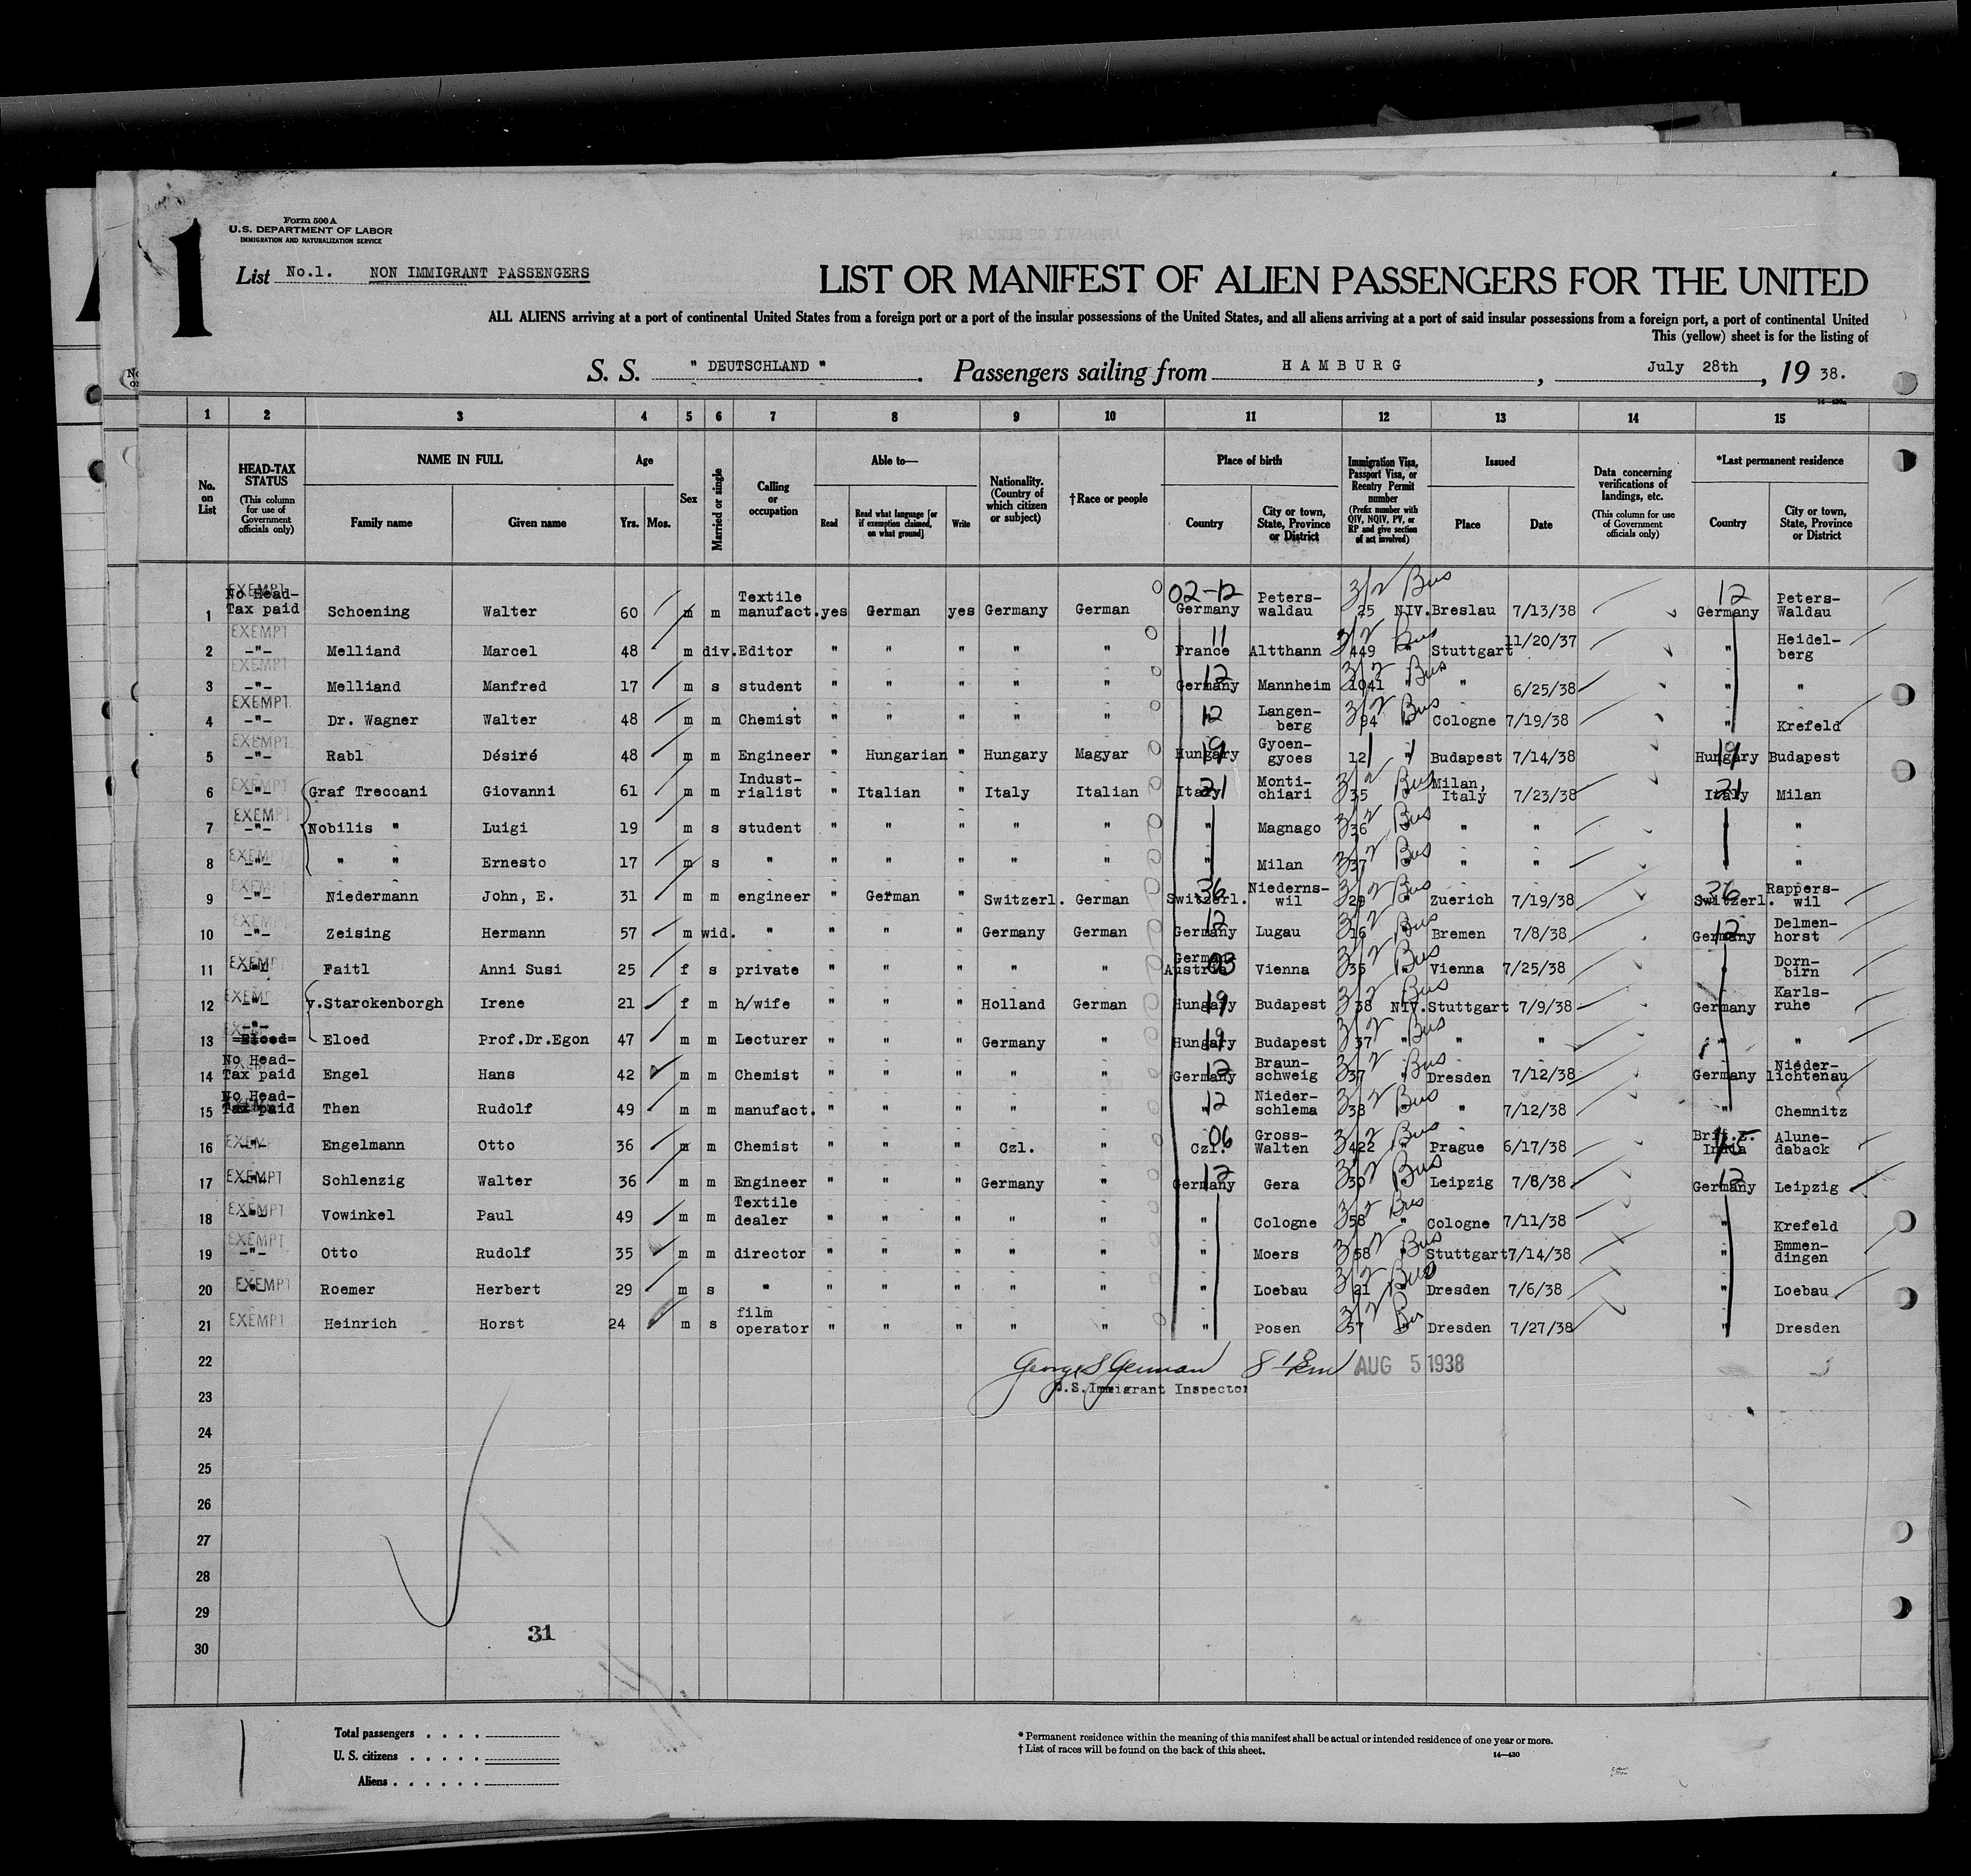 1
Form 500 A
U.S. DEPARTMENT OF LABOR
IMMIGRATION AND NATURALIZATION SERVICE
List No.1. NON IMMIGRANT PASSENGERS
LIST OR MANIFEST OF ALIEN PASSENGERS FOR THE UNITED
ALL ALIENS arriving at a port of continental United States from a foreign port or a port of the insular possessions of the United States, and all aliens arriving at a port of said insular possessions from a foreign port, a port of continental United
This (yellow) sheet is for the listing of
S. S. " DEUTSCHLAND " . Passengers sailing from HAMBURG , July 28th , 19 38.
1 2 3 4 5 6 7 8 9 10 11 12 13 14 15
No. on List
HEAD-TAX STATUS (This column for use of Government officials only)
NAME IN FULL Family name Given name
Age Yrs. Mos.
Sex
Married or single
Calling or occupation
Able to— Read Read what language [or if exemption claimed, on what ground] Write
Nationality. (Country of which citizen or subject)
†Race or people
Place of birth Country City or town, State, Province or District
Immigration Visa, Passport Visa, or Reentry Permit number (Prefix number with QIV, NQIV, PV, or RP and give section of act involved)
Issued Place Date
Data concerning verifications of landings, etc. (This column for use of Government officials only)
*Last permanent residence Country City or town, State, Province or District
1 EXEMPT No Head-Tax paid Schoening Walter 60 m m Textile manufact. yes German yes Germany German 02-12 Germany Peters-waldau 3/2 Bus 25 NIV. Breslau 7/13/38 12 Germany Peters-Waldau
2 EXEMPT -"- Melliand Marcel 48 m div. Editor " " " " " 11 France Altthann 3/2 Bus 449 " Stuttgart 11/20/37 " Heidel-berg
3 EXEMPT -"- Melliand Manfred 17 m s student " " " " " 12 Germany Mannheim 3/2 Bus 1041 " " 6/25/38 " "
4 EXEMPT. -"- Dr. Wagner Walter 48 m m Chemist " " " " " 12 " Langen-berg 3/2 Bus 94 " Cologne 7/19/38 " Krefeld
5 EXEMPT. -"- Rabl Désiré 48 m m Engineer " Hungarian " Hungary Magyar 19 Hungary Gyoen-gyoes 12 " Budapest 7/14/38 19 Hungary Budapest
6 EXEMPT -"- Graf Treccani Giovanni 61 m m Indust-rialist " Italian " Italy Italian 21 Italy Monti-chiari 3/2 Bus 35 " Milan, Italy 7/23/38 21 Italy Milan
7 EXEMPT -"- Nobilis " Luigi 19 m s student " " " " " " Magnago 3/2 Bus 36 " " " " "
8 EXEMPT -"- " " Ernesto 17 m s " " " " " " " Milan 3/2 Bus 37 " " " " "
9 EXEMPT -"- Niedermann John, E. 31 m m engineer " German " Switzerl. German 36 Switzerl. Niederns-wil 3/2 Bus 29 " Zuerich 7/19/38 36 Switzerl. Rappers-wil
10 EXEMPT -"- Zeising Hermann 57 m wid. " " " " Germany German 12 Germany Lugau 3/2 Bus 16 " Bremen 7/8/38 12 Germany Delmen-horst
11 EXEMPT -"- Faitl Anni Susi 25 f s private " " " " " 03 German Austria Vienna 3/2 Bus 35 " Vienna 7/25/38 " Dorn-birn
12 EXEMPT -"- v.Starckenborgh Irene 21 f m h/wife " " " Holland German 19 Hungary Budapest 3/2 Bus 38 NIV. Stuttgart 7/9/38 Germany Karls-ruhe
13 EXEMPT -"- Eloed Eloed Prof.Dr.Egon 47 m m Lecturer " " " Germany " 19 Hungary Budapest 3/2 Bus 37 " " " " "
14 No Head-Tax paid Engel Hans 42 m m Chemist " " " " " 12 Germany Braun-schweig 3/2 Bus 37 " Dresden 7/12/38 Germany Nieder-lichtenau
15 No Head-Tax paid Then Rudolf 49 m m manufact. " " " " " 12 " Nieder-schlema 3/2 Bus 38 " " 7/12/38 " Chemnitz
16 EXEMPT -"- Engelmann Otto 36 m m Chemist " " " Czl. " 06 Czl. Gross-Walten 3/2 Bus 422 " Prague 6/17/38 India Alune-daback
17 EXEMPT -"- Schlenzig Walter 36 m m Engineer " " " Germany " 12 Germany Gera 3/2 Bus 30 " Leipzig 7/8/38 12 Germany Leipzig
18 EXEMPT -"- Vowinkel Paul 49 m m Textile dealer " " " " " " Cologne 3/2 Bus 58 " Cologne 7/11/38 " Krefeld
19 EXEMPT -"- Otto Rudolf 35 m m director " " " " " " Moers 3/2 Bus 58 " Stuttgart 7/14/38 " Emmen-dingen
20 EXEMPT -"- Roemer Herbert 29 m s " " " " " " " Loebau 3/2 Bus 21 " Dresden 7/6/38 " Loebau
21 EXEMPT Heinrich Horst 24 m s film operator " " " " " " Posen 3/2 Bus 57 " Dresden 7/27/38 " Dresden
22 George S German AUG 5 1938
U.S. Immigrant Inspector
23
24
25
26
27
28
29
31
30
Total passengers . . . .
U. S. citizens . . . . .
Aliens . . . . . .
* Permanent residence within the meaning of this manifest shall be actual or intended residence of one year or more.
† List of races will be found on the back of this sheet.
14—430